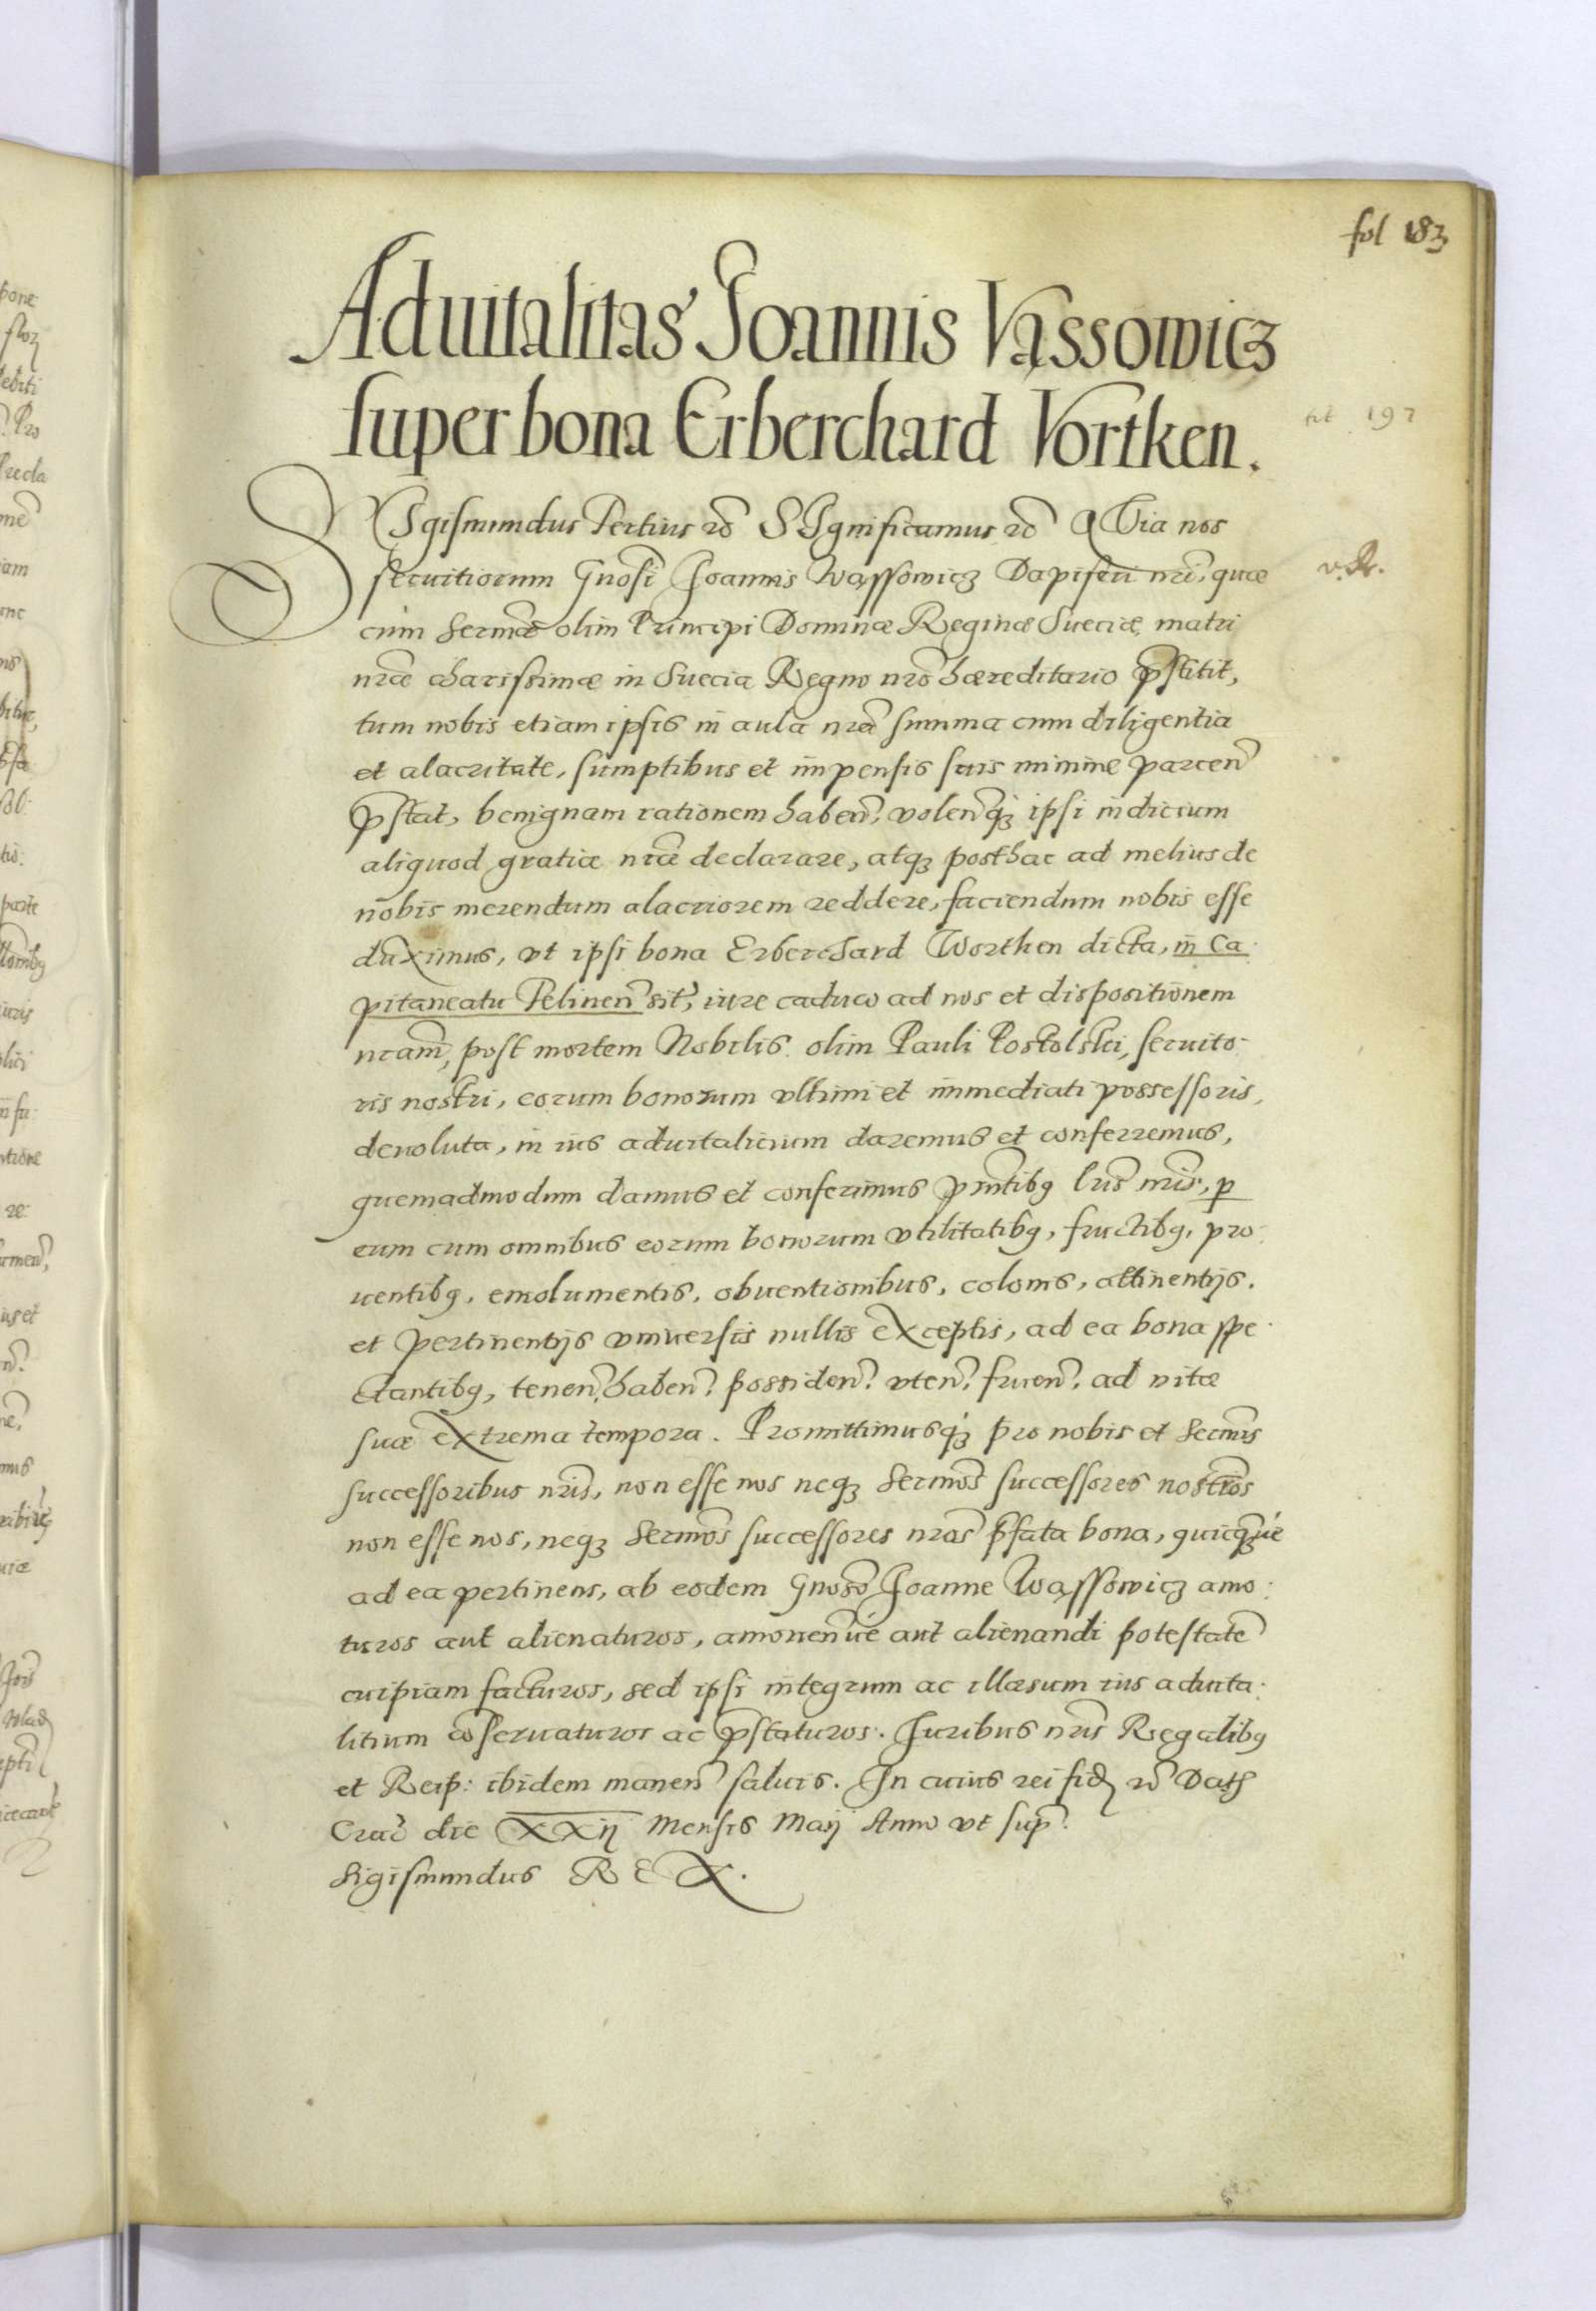 fol 183
Aduitalitas Joannis Vąssowicz
super bona Erberchard Vortken.
tit 197
SIgismundus Tertius rõ SIgnificamus rõ QVia nos
seruitiorum Gnosi Joannis Wąssowicz Dapiferi nri, quæ
v. R.
cum Sermæ olim Principi Dominæ Reginæ Sueciæ, matri
nræ charissimæ in Suecia Regno nrõ hæreditario p̃stitit,
tum nobis etiam ipsis in aula nrã summa cum diligentia
et alacritate, sumptibus et impensis suis minime parceñ
p̃stat, benignam rationem habeñ, voleñq̃ ipsi indicium
aliquod gratiæ nræ declarare, atq̃ posthac ad melius de
nobis merendum alacriorem reddere, faciendum nobis esse
duximus, vt ipsi bona Erberchard Workhen dicta, in Ca:
pitaneatu Felineñ sit̃, iure caduco ad nos et dispositionem
nram̃, post mortem Nobilis olim Pauli Postolski, seruito:
ris nostri, eorum bonorum vltimi et immediati possessoris,
deuoluta, in ius aduitalicium daremus et conferremus,
quemadmodum damus et conferimus p̃ntibꝫ lris nris, p
eum cum omnibus eorum bonorum vtilitatibꝫ, fructibꝫ, pro:
uentibꝫ, emolumentis, obuentionibus, colonis, attinentijs.
et pertinentijs vniuersis nullis exceptis, ad ea bona spe:
ctantibꝫ, teneñ, habeñ, possideñ, vteñ, frueñ, ad vitæ
suæ extrema tempora. Promittimusq̃ pro nobis et Sermis
successoribus nris, non esse nos neq̃ Sermos successores nostros
non esse nos, neq̃ Sermos successores nros p̃fata bona, quicq̃ue
ad ea pertinens, ab eodem Gnoso Joanne Wąssowicz amo:
turos aut alienaturos, amoueñue aut alienandi potestatẽ
cuipiam facturos, sed ipsi integrum ac illæsum ius aduita:
litium cõseruaturos ac p̃staturos. Juribus nris Regalibꝫ
et Reip: ibidem maneñ saluis. In cuius rei fid̃ rõ Dat̃
Crac̃ die XXij Mensis Maij Anno vt sup̃.
Sigismundus REX.